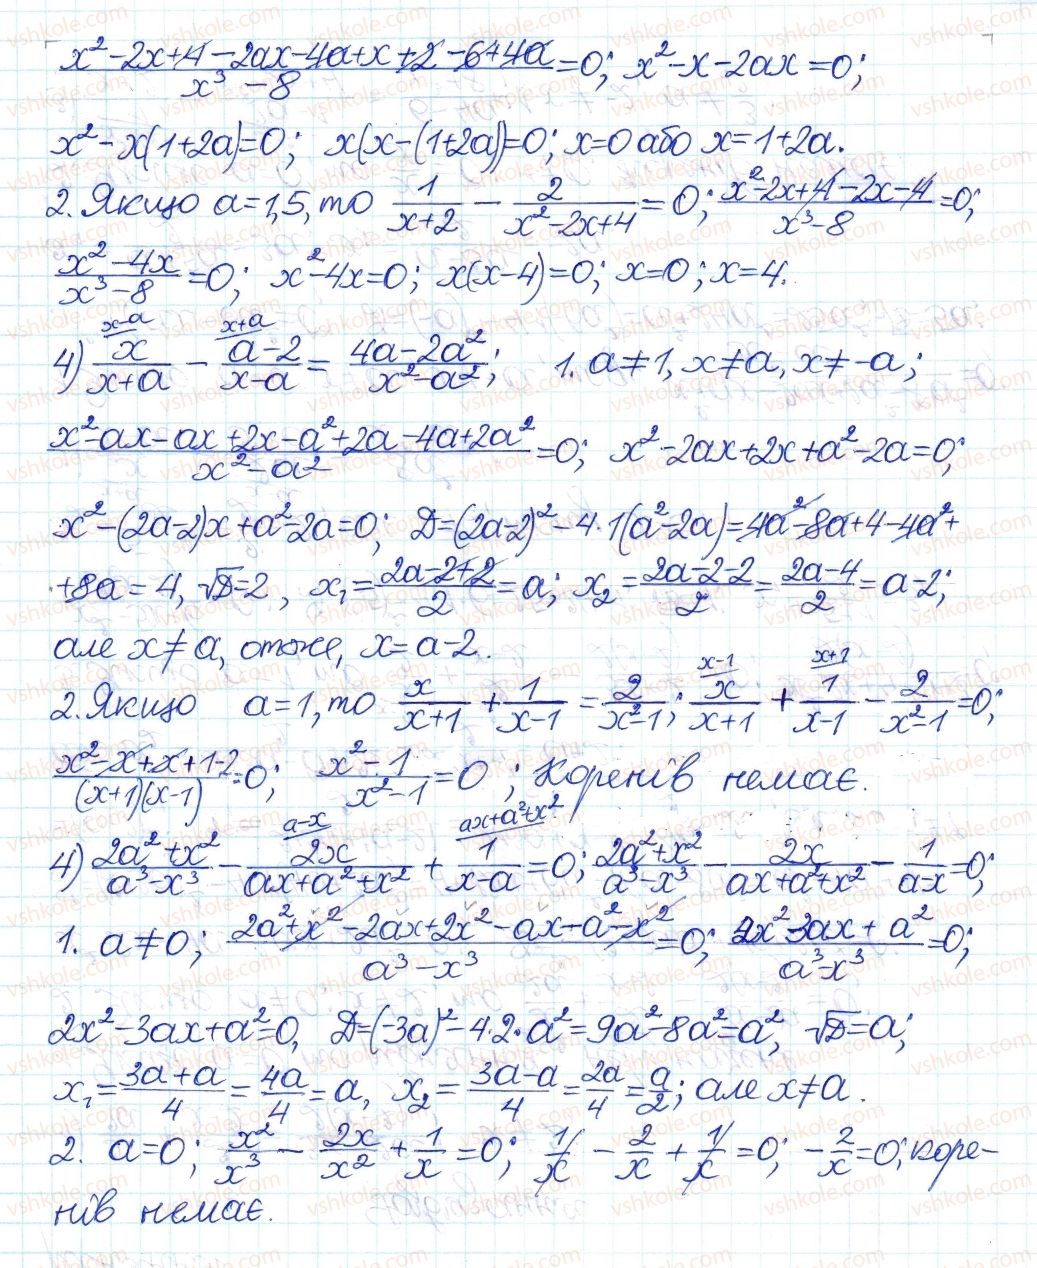 (x² - 2x + 4 - 2ax - 4a + x + 2 - 6 + 4a)/(x³ - 8) = 0; x² - x - 2ax = 0;
x² - x(1 + 2a) = 0; x(x - (1 + 2a)) = 0; x = 0 або x = 1 + 2a.
2. Якщо a = 1,5, то 1/(x+2) - 2/(x² - 2x + 4) = 0; (x² - 2x + 4 - 2x - 4)/(x³ - 8) = 0;
(x² - 4x)/(x³ - 8) = 0; x² - 4x = 0; x(x - 4) = 0; x = 0; x = 4.
x-a x+a
4) x/(x+a) - (a-2)/(x-a) = (4a - 2a²)/(x² - a²); 1. a ≠ 1, x ≠ a, x ≠ -a;
(x² - ax - ax + 2x - a² + 2a - 4a + 2a²)/(x² - a²) = 0; x² - 2ax + 2x + a² - 2a = 0;
x² - (2a - 2)x + a² - 2a = 0; D = (2a - 2)² - 4·1(a² - 2a) = 4a² - 8a + 4 - 4a² +
+ 8a = 4, √D = 2, x₁ = (2a - 2 + 2)/2 = a; x₂ = (2a - 2 - 2)/2 = (2a - 4)/2 = a - 2;
але x ≠ a, отже, x = a - 2.
x-1 x+1
2. Якщо a = 1, то x/(x+1) + 1/(x-1) = 2/(x² - 1); x/(x+1) + 1/(x-1) - 2/(x² - 1) = 0;
(x² - x + x + 1 - 2)/((x+1)(x-1)) = 0; (x² - 1)/(x² - 1) = 0; Коренів немає.
a-x ax+a²+x²
4) (2a² + x²)/(a³ - x³) - 2x/(ax + a² + x²) + 1/(x-a) = 0; (2a² + x²)/(a³ - x³) - 2x/(ax + a² + x²) - 1/(a-x) = 0;
1. a ≠ 0; (2a² + x² - 2ax + 2x² - ax - a² - x²)/(a³ - x³) = 0; (2x² - 3ax + a²)/(a³ - x³) = 0;
2x² - 3ax + a² = 0, D = (-3a)² - 4·2·a² = 9a² - 8a² = a², √D = a;
x₁ = (3a + a)/4 = 4a/4 = a, x₂ = (3a - a)/4 = 2a/4 = a/2; але x ≠ a.
2. a = 0; x²/x³ - 2x/x² + 1/x = 0; 1/x - 2/x + 1/x = 0; - 2/x = 0; коре-
нів немає.